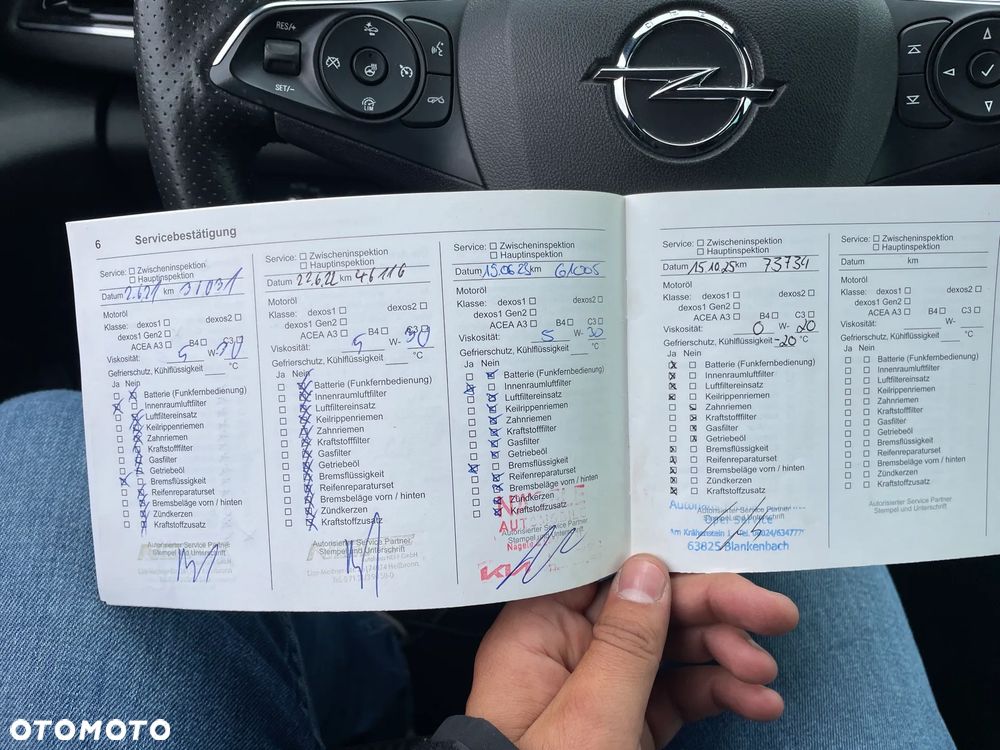 RES/+
SET/-
LIM
OPEL
6 Servicebestätigung
Service: Zwischeninspektion
Hauptinspektion
Datum 2.6.21 km 31031
Motoröl
Klasse: dexos1 dexos2
dexos1 Gen2
ACEA A3 B4 C3
Viskosität: 5 W- 30
Gefrierschutz, Kühlflüssigkeit °C
Ja Nein
Batterie (Funkfernbedienung)
Innenraumluftfilter
Luftfiltereinsatz
Keilrippenriemen
Zahnriemen
Kraftstofffilter
Gasfilter
Getriebeöl
Bremsflüssigkeit
Reifenreparaturset
Bremsbeläge vorn / hinten
Zündkerzen
Kraftstoffzusatz
Autorisierter Service Partner
Stempel und Unterschrift
Service: Zwischeninspektion
Hauptinspektion
Datum 22.6.22 km 46116
Motoröl
Klasse: dexos1 dexos2
dexos1 Gen2
ACEA A3 B4 C3
Viskosität: 5 W- 30
Gefrierschutz, Kühlflüssigkeit °C
Ja Nein
Batterie (Funkfernbedienung)
Innenraumluftfilter
Luftfiltereinsatz
Keilrippenriemen
Zahnriemen
Kraftstofffilter
Gasfilter
Getriebeöl
Bremsflüssigkeit
Reifenreparaturset
Bremsbeläge vorn / hinten
Zündkerzen
Kraftstoffzusatz
Autorisierter Service Partner
Stempel und Unterschrift
74074 Heilbronn
Service: Zwischeninspektion
Hauptinspektion
Datum 15.06.23 km 61005
Motoröl
Klasse: dexos1 dexos2
dexos1 Gen2
ACEA A3 B4 C3
Viskosität: 5 W- 30
Gefrierschutz, Kühlflüssigkeit °C
Ja Nein
Batterie (Funkfernbedienung)
Innenraumluftfilter
Luftfiltereinsatz
Keilrippenriemen
Zahnriemen
Kraftstofffilter
Gasfilter
Getriebeöl
Bremsflüssigkeit
Reifenreparaturset
Bremsbeläge vorn / hinten
Zündkerzen
Kraftstoffzusatz
Autorisierter Service Partner
Stempel und Unterschrift
KIA
Service: Zwischeninspektion
Hauptinspektion
Datum 15.10.25 km 73734
Motoröl
Klasse: dexos1 dexos2
dexos1 Gen2
ACEA A3 B4 C3
Viskosität: 0 W- 20
Gefrierschutz, Kühlflüssigkeit -20 °C
Ja Nein
Batterie (Funkfernbedienung)
Innenraumluftfilter
Luftfiltereinsatz
Keilrippenriemen
Zahnriemen
Kraftstofffilter
Gasfilter
Getriebeöl
Bremsflüssigkeit
Reifenreparaturset
Bremsbeläge vorn / hinten
Zündkerzen
Kraftstoffzusatz
Autorisierter Service Partner
Stempel und Unterschrift
63825 Blankenbach
Service: Zwischeninspektion
Hauptinspektion
Datum km
Motoröl
Klasse: dexos1 dexos2
dexos1 Gen2
ACEA A3 B4 C3
Viskosität: W-
Gefrierschutz, Kühlflüssigkeit °C
Ja Nein
Batterie (Funkfernbedienung)
Innenraumluftfilter
Luftfiltereinsatz
Keilrippenriemen
Zahnriemen
Kraftstofffilter
Gasfilter
Getriebeöl
Bremsflüssigkeit
Reifenreparaturset
Bremsbeläge vorn / hinten
Zündkerzen
Kraftstoffzusatz
Autorisierter Service Partner
Stempel und Unterschrift
OTOMOTO